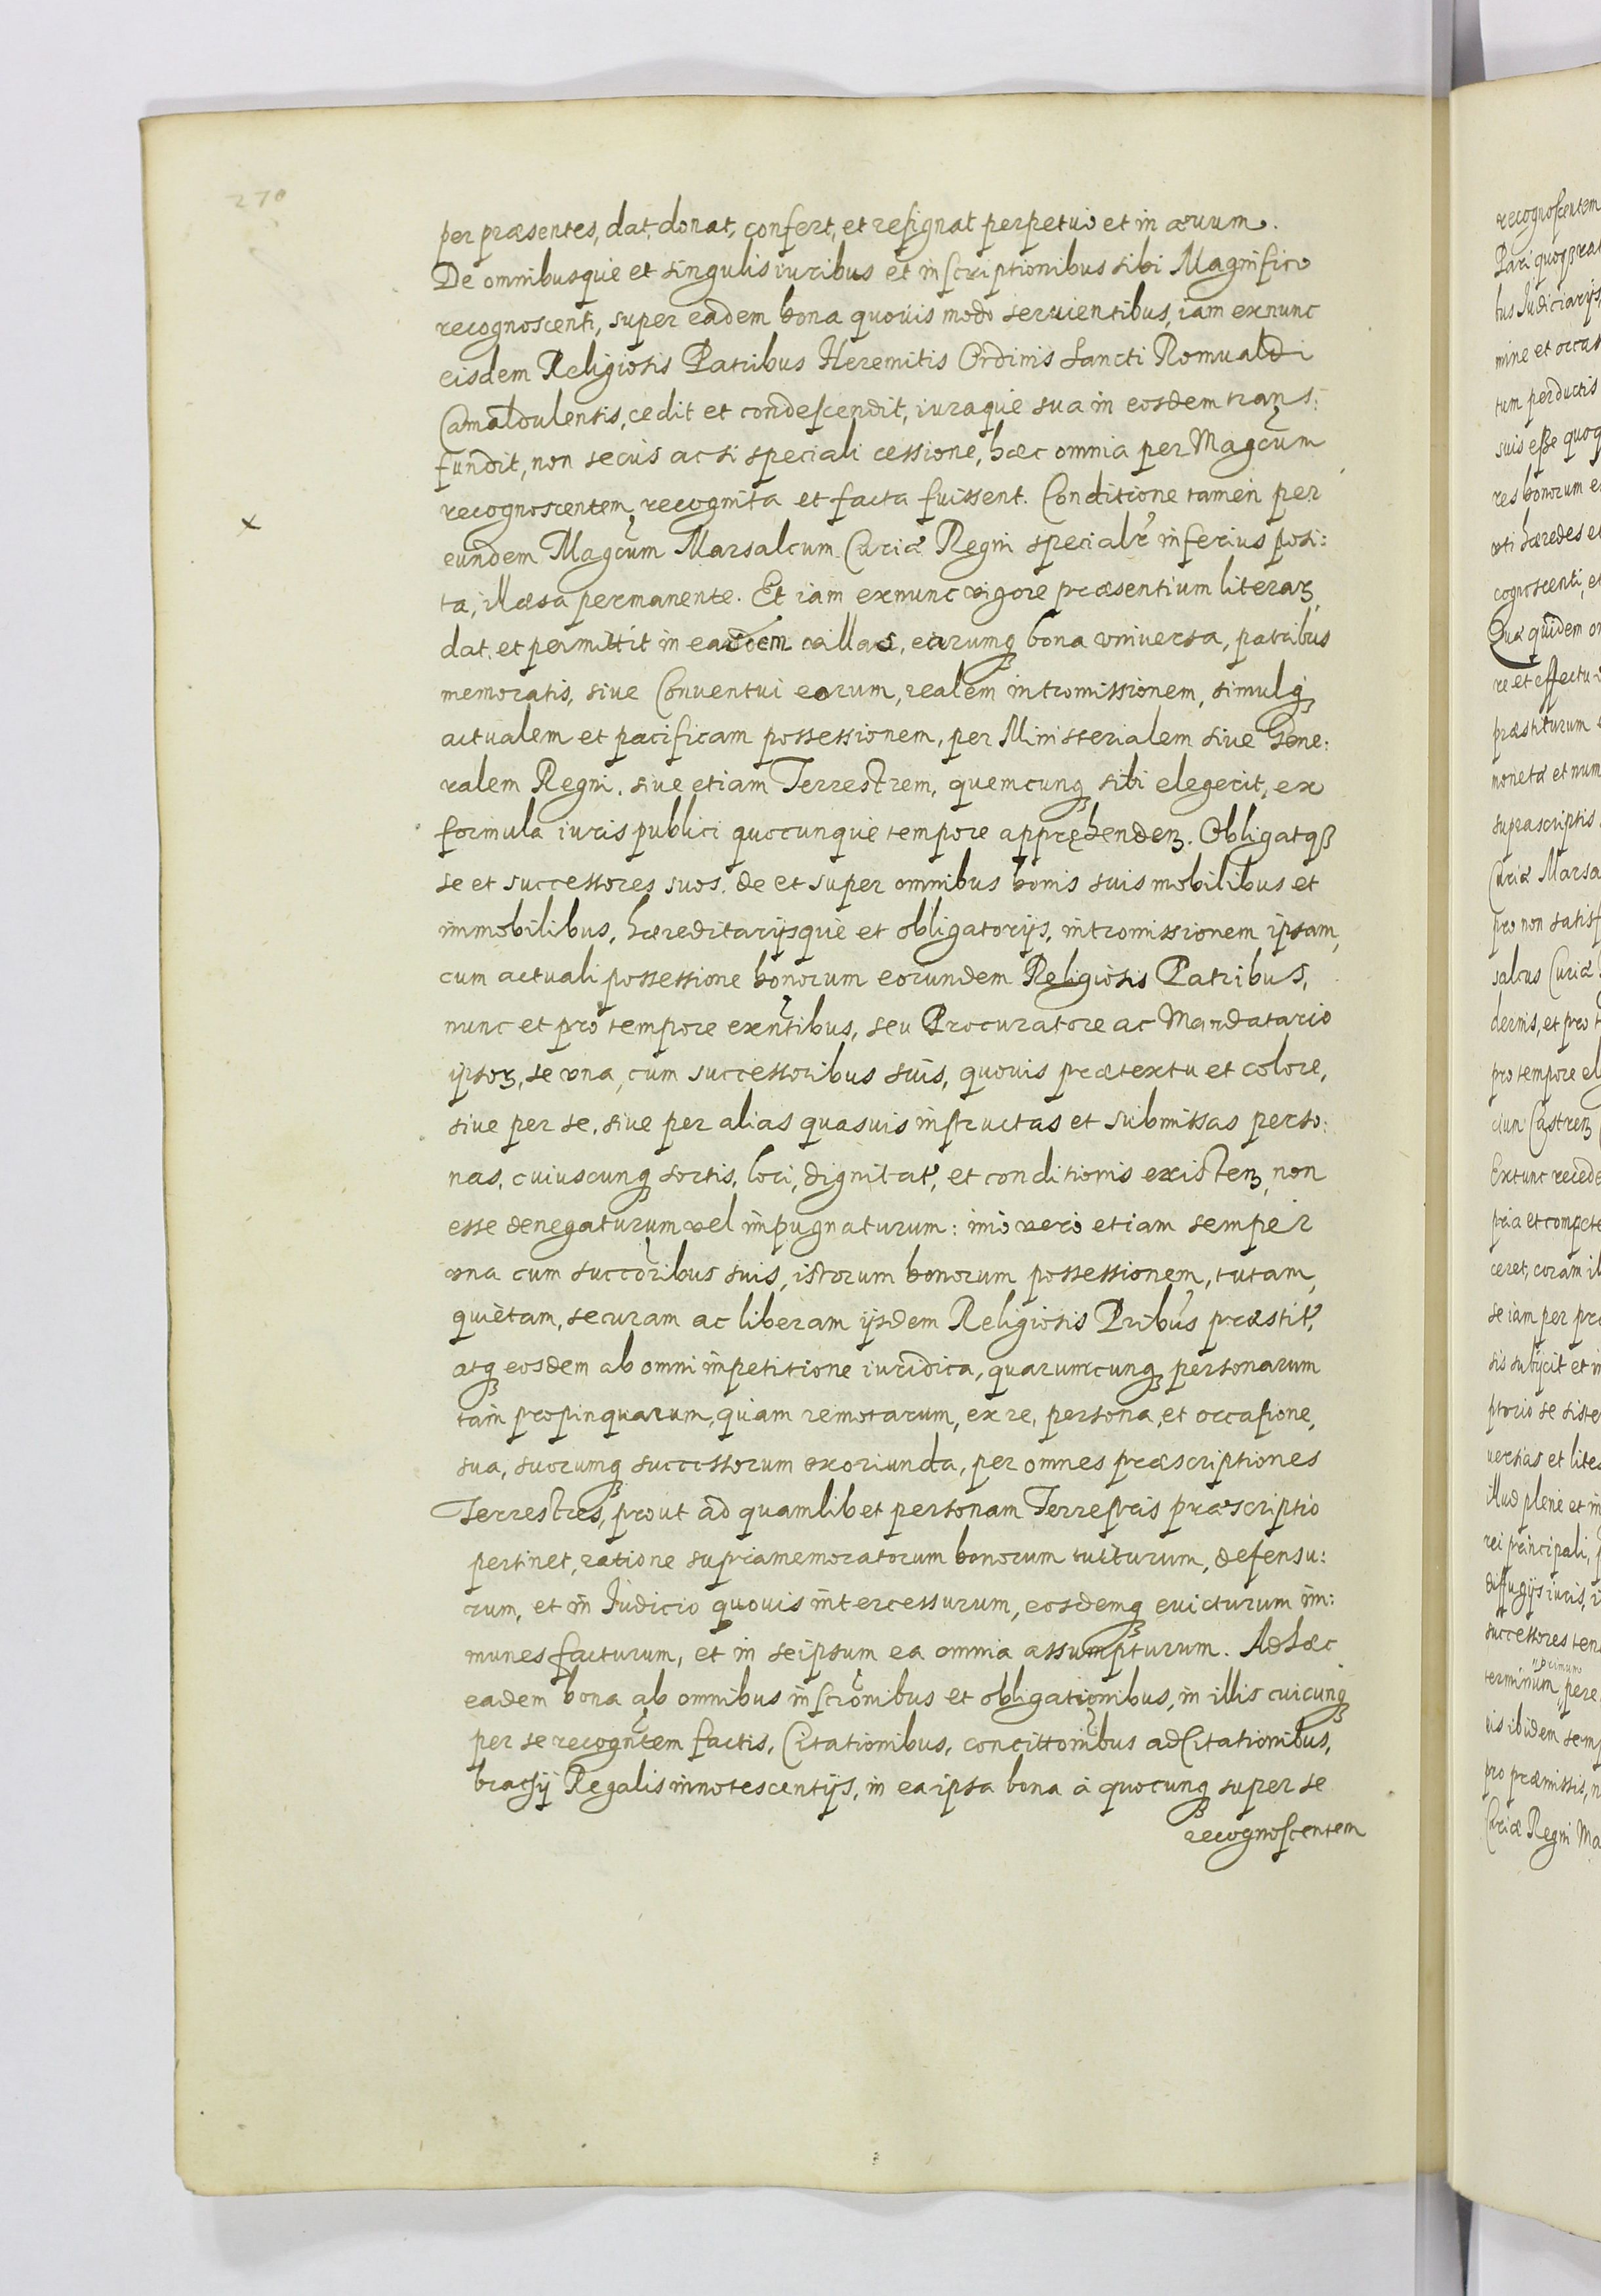 270
per præsentes, dat, donat, confert, et resignat perpetuò et in æuum.
De omnibusque et singulis iuribus et inscriptionibus sibi Magnifico
recognoscenti, super eadem bona quouis modo seruientibus, iam exnunc
eisdem Religiosis Patribus Heremitis Ordinis Sancti Romualdi
Camaldulensis, cedit et condescendit, iuraque sua in eosdem trans:
fundit, non secùs ac si speciali cessione, hæc omnia per Magcum
recognoscentem, recognita et facta fuissent. Conditione tamen per
x
eundem Magcum Marsalcum Curiæ Regni specialr inferius posi:
ta, illæsa permanente. Et iam exnunc vigore præsentium literaꝝ,
dat et permittit in easdem villas, earumqꝫ bona vniversa, patribus
memoratis, siue Conuentui eorum, realem intromissionem, simulqꝫ
actualem et pacificam possessionem, per Ministerialem siue Gene:
ralem Regni, siue etiam Terrestrem, quemcunqꝫ sibi elegerit, ex
formula iuris publici quocunque tempore apprehendenꝫ. Obligatqꝫ
se et successores suos, de et super omnibus bonis suis mobilibus et
immobilibus, hæreditarijsque et obligatorijs, intromissionem ipsam,
cum actuali possessione bonorum eorundem Religiosis Patribus,
nunc et pro tempore exntibus, seu Procuratore ac Mandatario
ipsoꝝ, se vna, cum successoribus suis, quouis prætextu et colore,
siue per se, siue per alias quasuis instructas et submissas perso:
nas, cuiuscunqꝫ sortis, loci, dignitat, et conditionis existenꝫ, non
esse denegaturum vel impugnaturum: imò verò etiam semper
vna cum succoribus suis, istorum bonorum possessionem, tutam,
quietam, securam ac liberam ijsdem Religiosis Pribus præstit,
atqꝫ eosdem ab omni impetitione iuridica, quarumcunqꝫ personarum
tam propinquarum, quam remotarum, ex re, persona, et occasione,
sua, suorumqꝫ successorum exoriunda, per omnes præscriptiones
Terrestres, prout ad quamlibet personam Terrestris præscriptio
pertinet, ratione supramemoratorum bonorum tuiturum, defensu:
rum, et in Judicio quouis intercessurum, eosdemqꝫ euicturum im:
munes facturum, et in seipsum ea omnia assumpturum. Ad hæc
eadem bona ab omnibus inscrionibus et obligationibus, in illis cuicunqꝫ
per se recogntem factis, Citationibus, concittonibus adcitationibus,
brachij Regalis innotescentijs, in ea ipsa bona à quocunqꝫ super se
recognoscentem
recognoscentem
tus Judiciarijs
mine et occas
tum perductis
suis esse quoq
res bonorum e
cognoscenti, et
re et effectu
præstiturum
monetæ et num
suprascriptis
Curiæ Marsa
pro non satisf
salcus Curiæ
pro tempore el
se iam per pr
sis subijcit et in
uersias et lite
illud plene et in
rei principali,
diffugijs iuris,
successores ten
primum
terminum pere
uis ibidem semp
pro præmissis, n
Curiæ Regni Ma